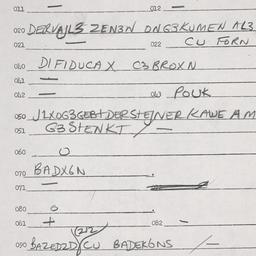 011 — 012 —
020 DERVAJL3 ZEN3N ONG3KUMEN AL3
021 — 022 CU FORN
060 DIFIDUCAX C3BROXN
061 —
062 — 063 POUK
050 J1XOG3GEBt DERSTEJNER/KAWE AM
051 G3STENKT /—
060 O
070 BADX6N
071 —
080 O
081 + 082 —
090 BAZEDZD (22) CU BADEK6NS /—